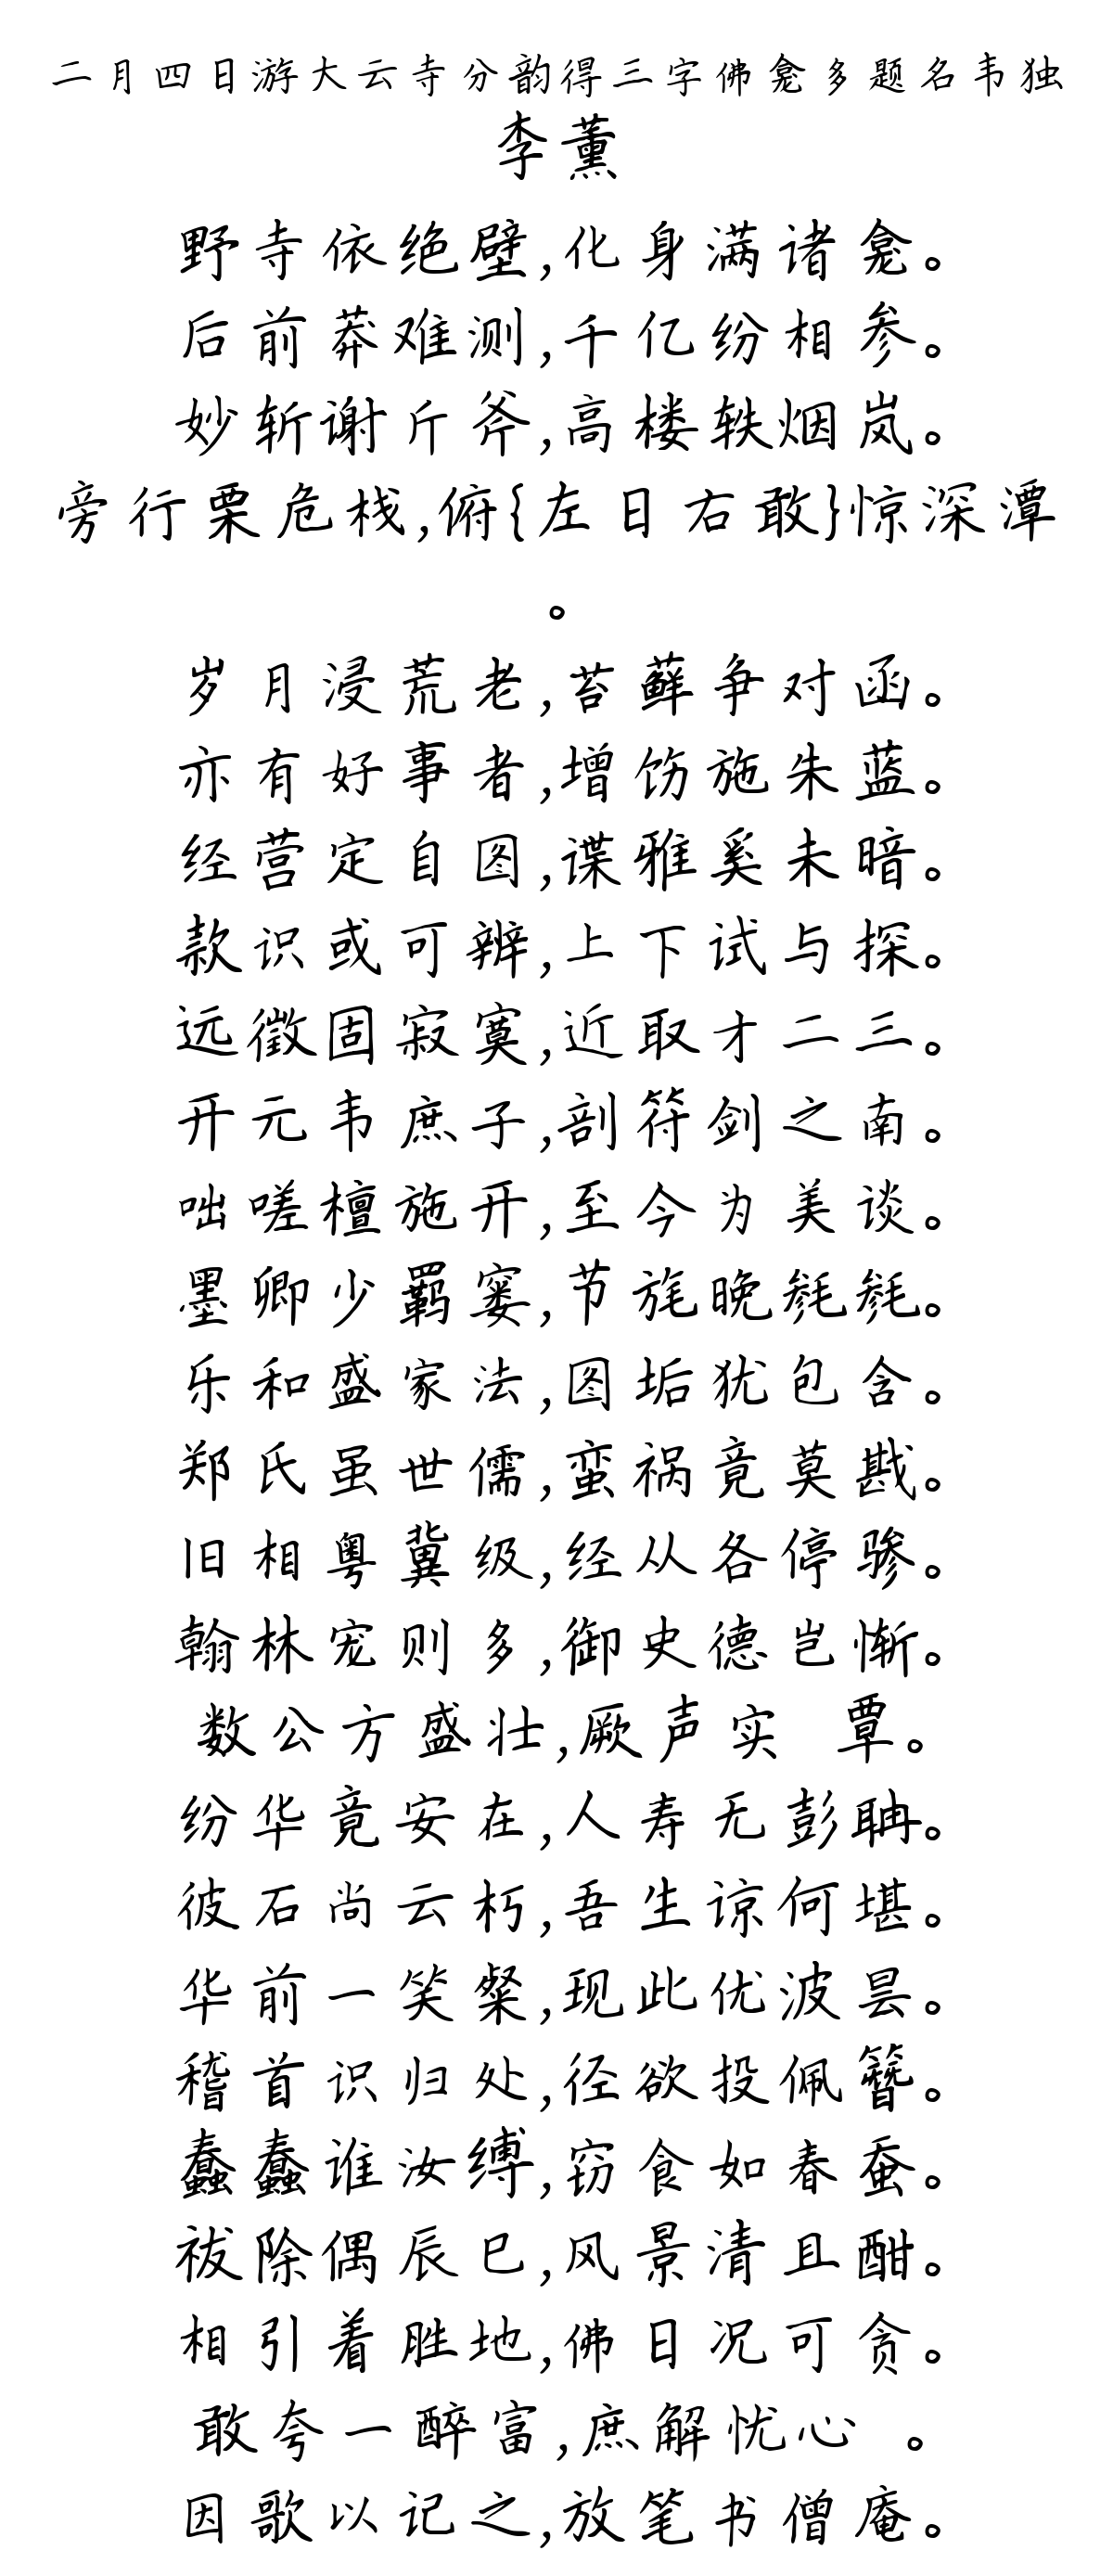 二月四日游大云寺分韵得三字佛龛多题名韦独
李薰
野寺依绝壁,化身满诸龛。
后前莽难测,千亿纷相参。
妙斩谢斤斧,高楼轶烟岚。
旁行栗危栈,俯{左日右敢}惊深潭
。
岁月浸荒老,苔藓争对函。
亦有好事者,增饬施朱蓝。
经营定自图,谍雅奚未暗。
款识或可辨,上下试与探。
远徵固寂寞,近取才二三。
开元韦庶子,剖符剑之南。
咄嗟檀施开,至今为美谈。
墨卿少羁窭,节旄晚毵毵。
乐和盛家法,图垢犹包含。
郑氏虽世儒,蛮祸竟莫戡。
旧相粤冀级,经从各停骖。
翰林宠则多,御史德岂惭。
数公方盛壮,厥声实 覃。
纷华竟安在,人寿无彭聃。
彼石尚云朽,吾生谅何堪。
华前一笑粲,现此优波昙。
稽首识归处,径欲投佩簪。
蠢蠢谁汝缚,窃食如春蚕。
祓除偶辰巳,风景清且酣。
相引着胜地,佛日况可贪。
敢夸一醉富,庶解忧心 。
因歌以记之,放笔书僧庵。